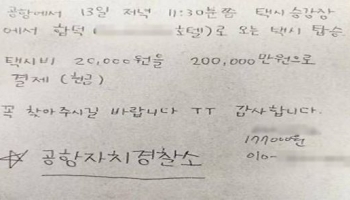 공항에서 13일 저녁 11:30분쯤 택시승강장
에서 합덕( 호텔)로 오는 택시 탑승.
택시비 20,000원을 200,000만원으로
결제 (현금)
꼭 찾아주시길 바랍니다 ㅠㅠ 감사합니다.
177000원
☆ 공항자치경찰소
010-